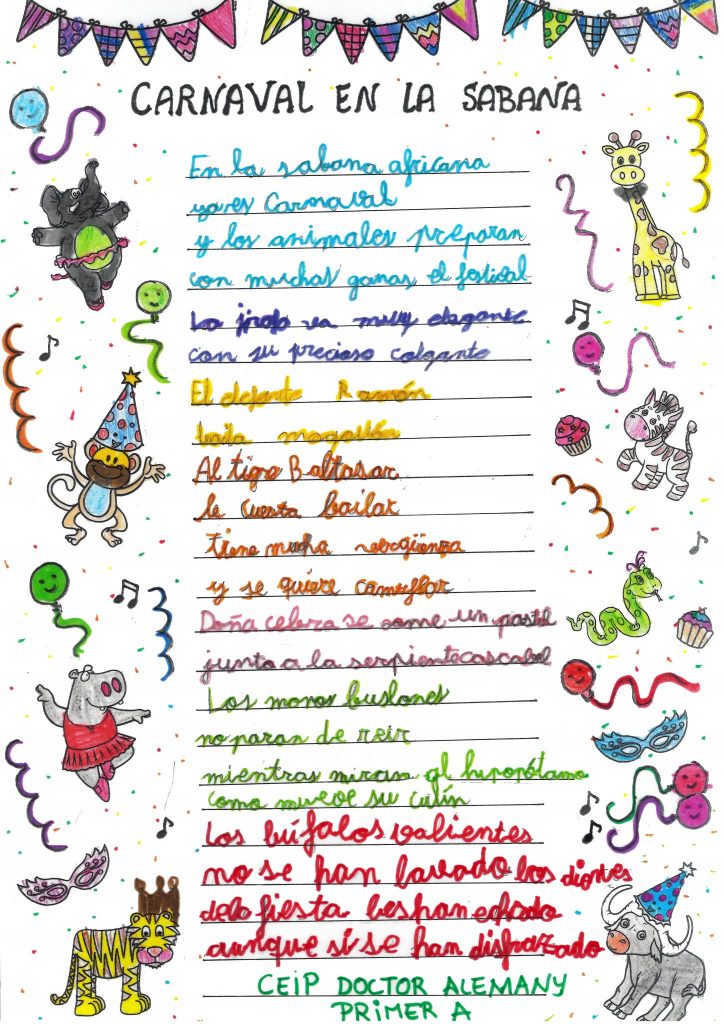 CARNAVAL EN LA SABANA
En la sabana africana
ya es Carnaval
y los animales preparan
con muchas ganas el festival
La jirafa va muy elegante
con su precioso colgante
El elefante Ramón
baila mogollón
Al tigre Baltasar
le cuesta bailar
tiene mucha vergüenza
y se quiere camuflar
Doña cebra se come un pastel
junto a la serpiente cascabel
Los monos burlones
no paran de reir
mientras miran al hipopótamo
como mueve su culín
Los búfalos valientes
no se han lavado los dientes
de la fiesta los han echado
aunque si se han disfrazado
CEIP DOCTOR ALEMANY
PRIMER A